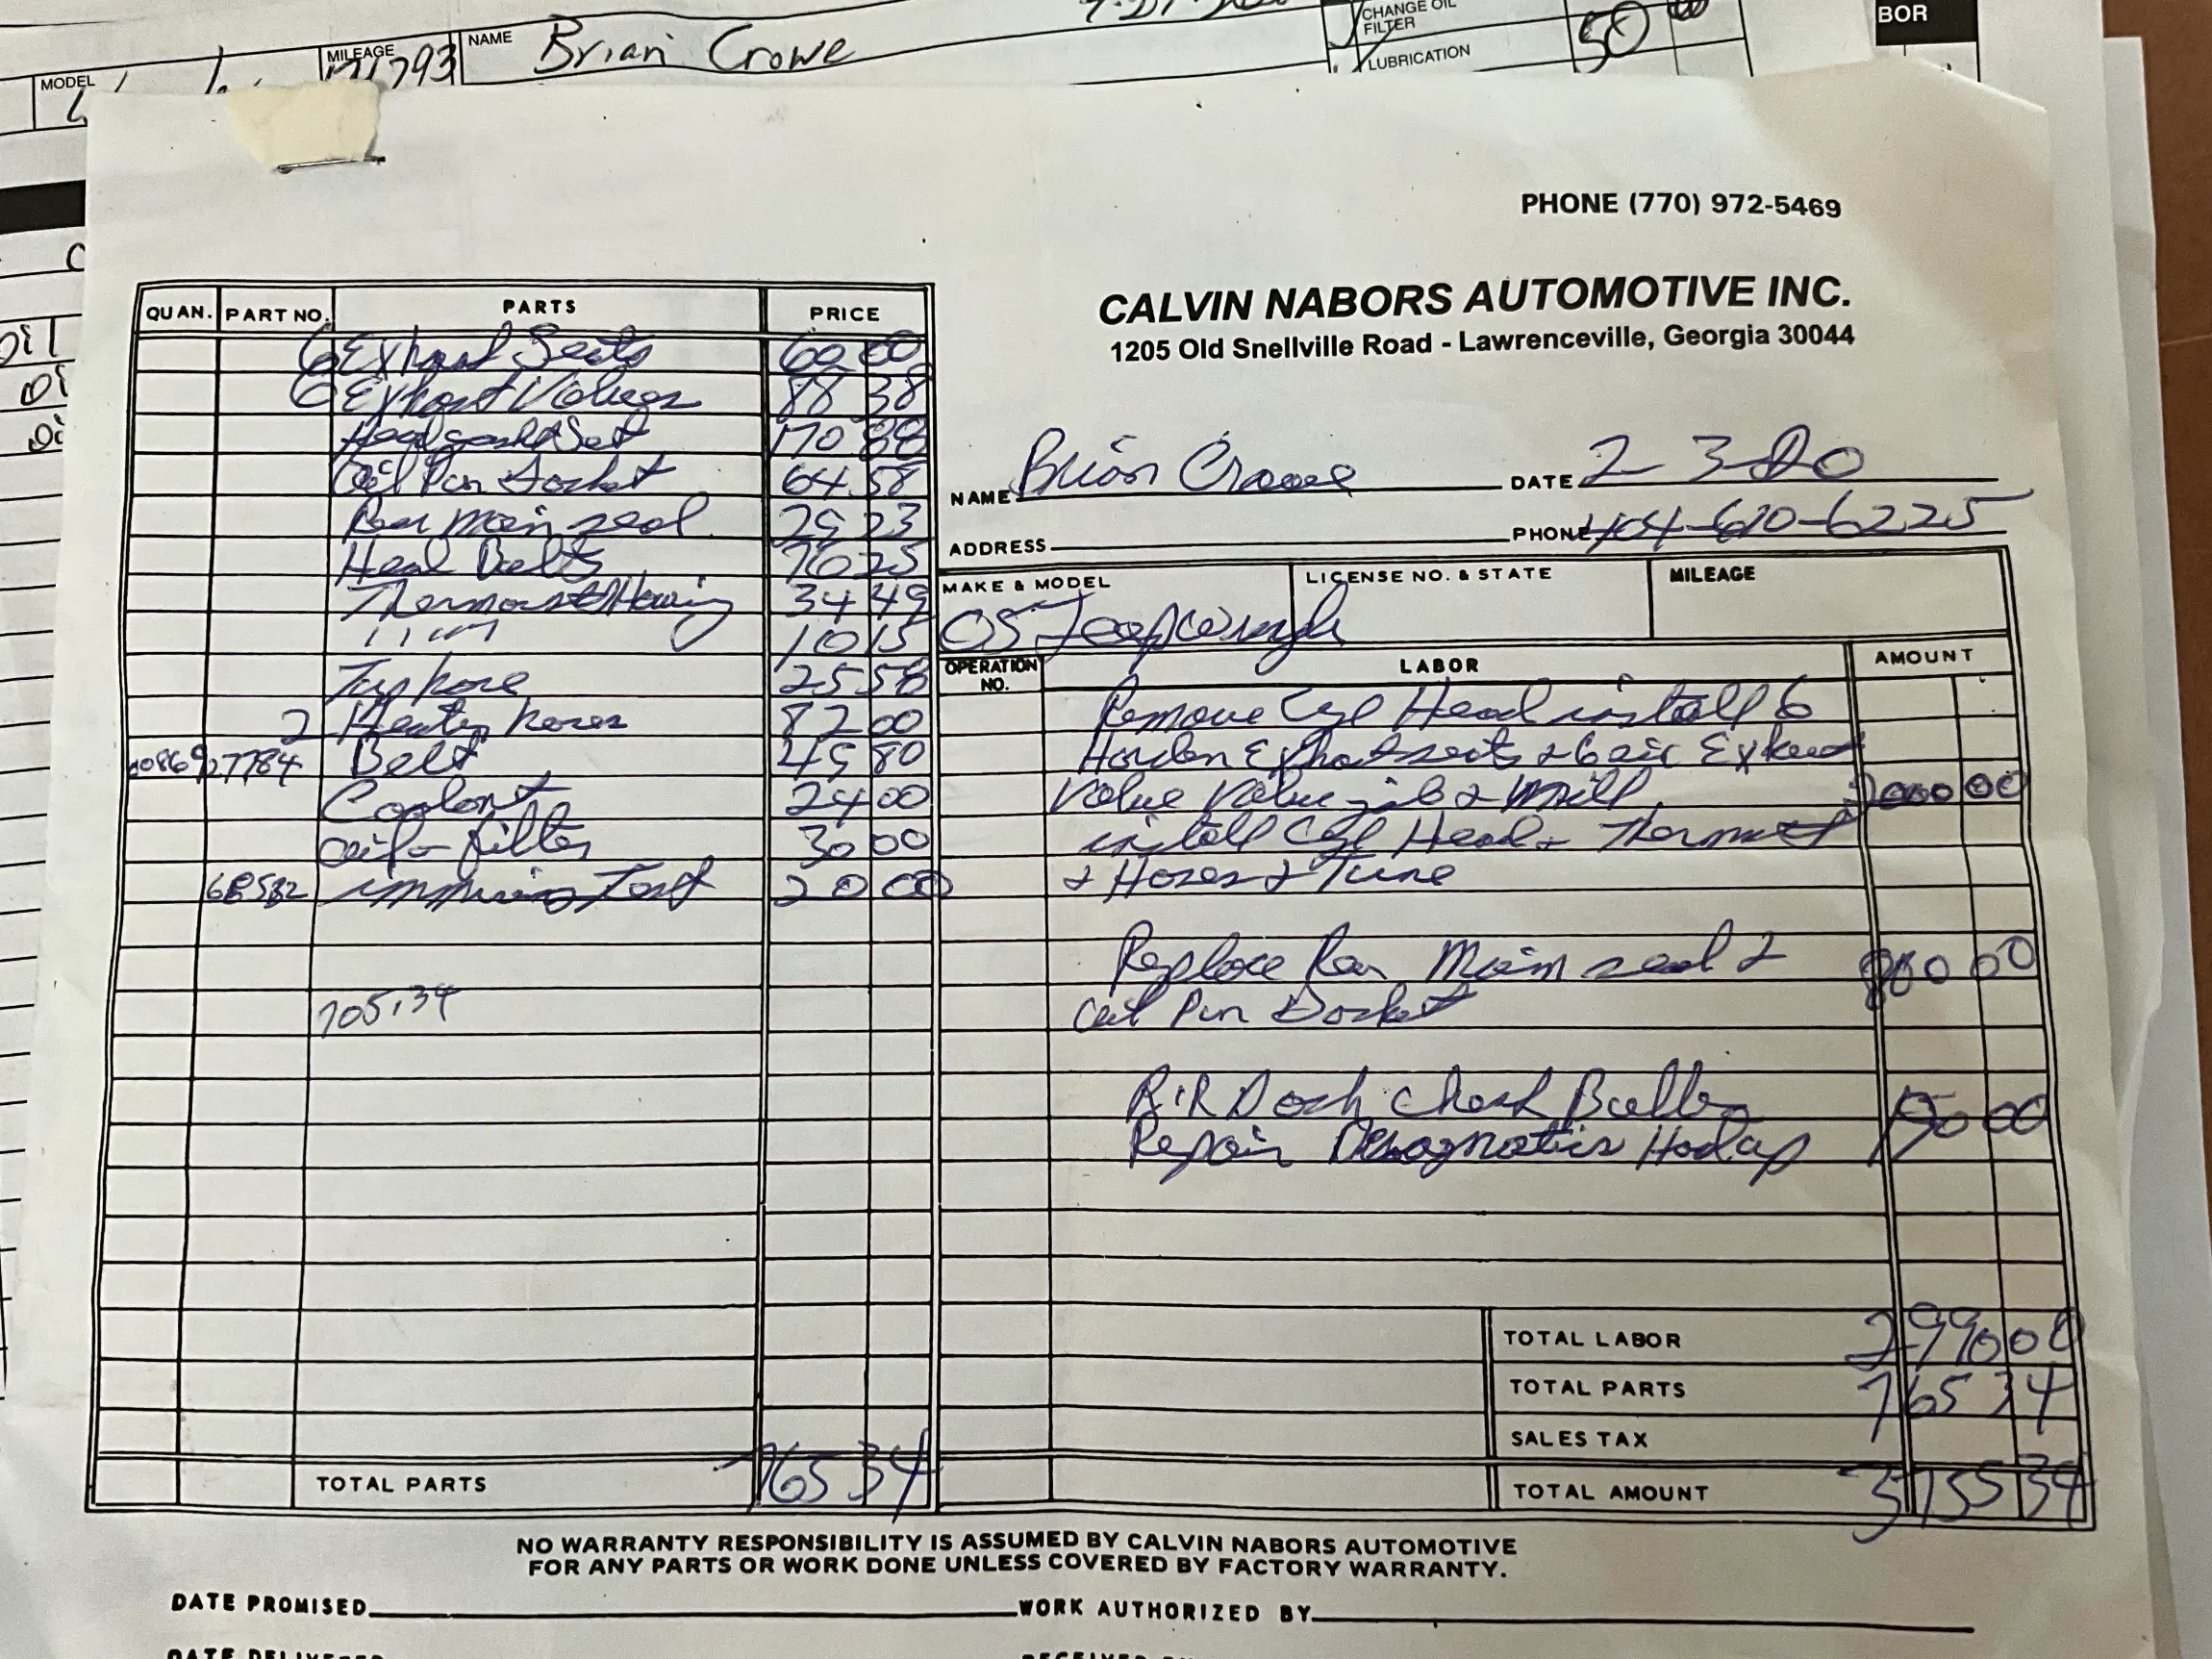 MODEL
MILEAGE 171793
NAME Brian Crowe
CHANGE OIL
FILTER
LUBRICATION
50 00
BOR
PHONE (770) 972-5469
CALVIN NABORS AUTOMOTIVE INC.
1205 Old Snellville Road - Lawrenceville, Georgia 30044
NAME Brian Crowe DATE 2 3-20
ADDRESS PHONE 404-610-6225
MAKE & MODEL LICENSE NO. & STATE MILEAGE
05 Jeep
QUAN. PART NO. PARTS PRICE
6 Exhaust Seats 60 00
6 Exhaust Valves 88 38
Head gasket Set 170 88
Oil Pan Gasket 64 58
Rear main seal 29 23
Head Bolts 76 25
Housing 34 49
10 15
Top hose 25 58
2 Heater hoses 82 00
27784 Belt 49 80
Coolant 24 00
oil & filter 30 00
Test 20 00
705.34
TOTAL PARTS 765 34
OPERATION NO. LABOR AMOUNT
Remove Cyl Head install 6
Harden Exhaust seats & 6 Exhaust
Valve Valve job & Mill 2000 00
install Cyl Head &
& Hoses & Tune
Replace Rear Main seal &
oil Pan Gasket
R&R Dash
Repair
TOTAL LABOR 2990 00
TOTAL PARTS 765 34
SALES TAX
TOTAL AMOUNT 3755 34
NO WARRANTY RESPONSIBILITY IS ASSUMED BY CALVIN NABORS AUTOMOTIVE
FOR ANY PARTS OR WORK DONE UNLESS COVERED BY FACTORY WARRANTY.
DATE PROMISED WORK AUTHORIZED BY